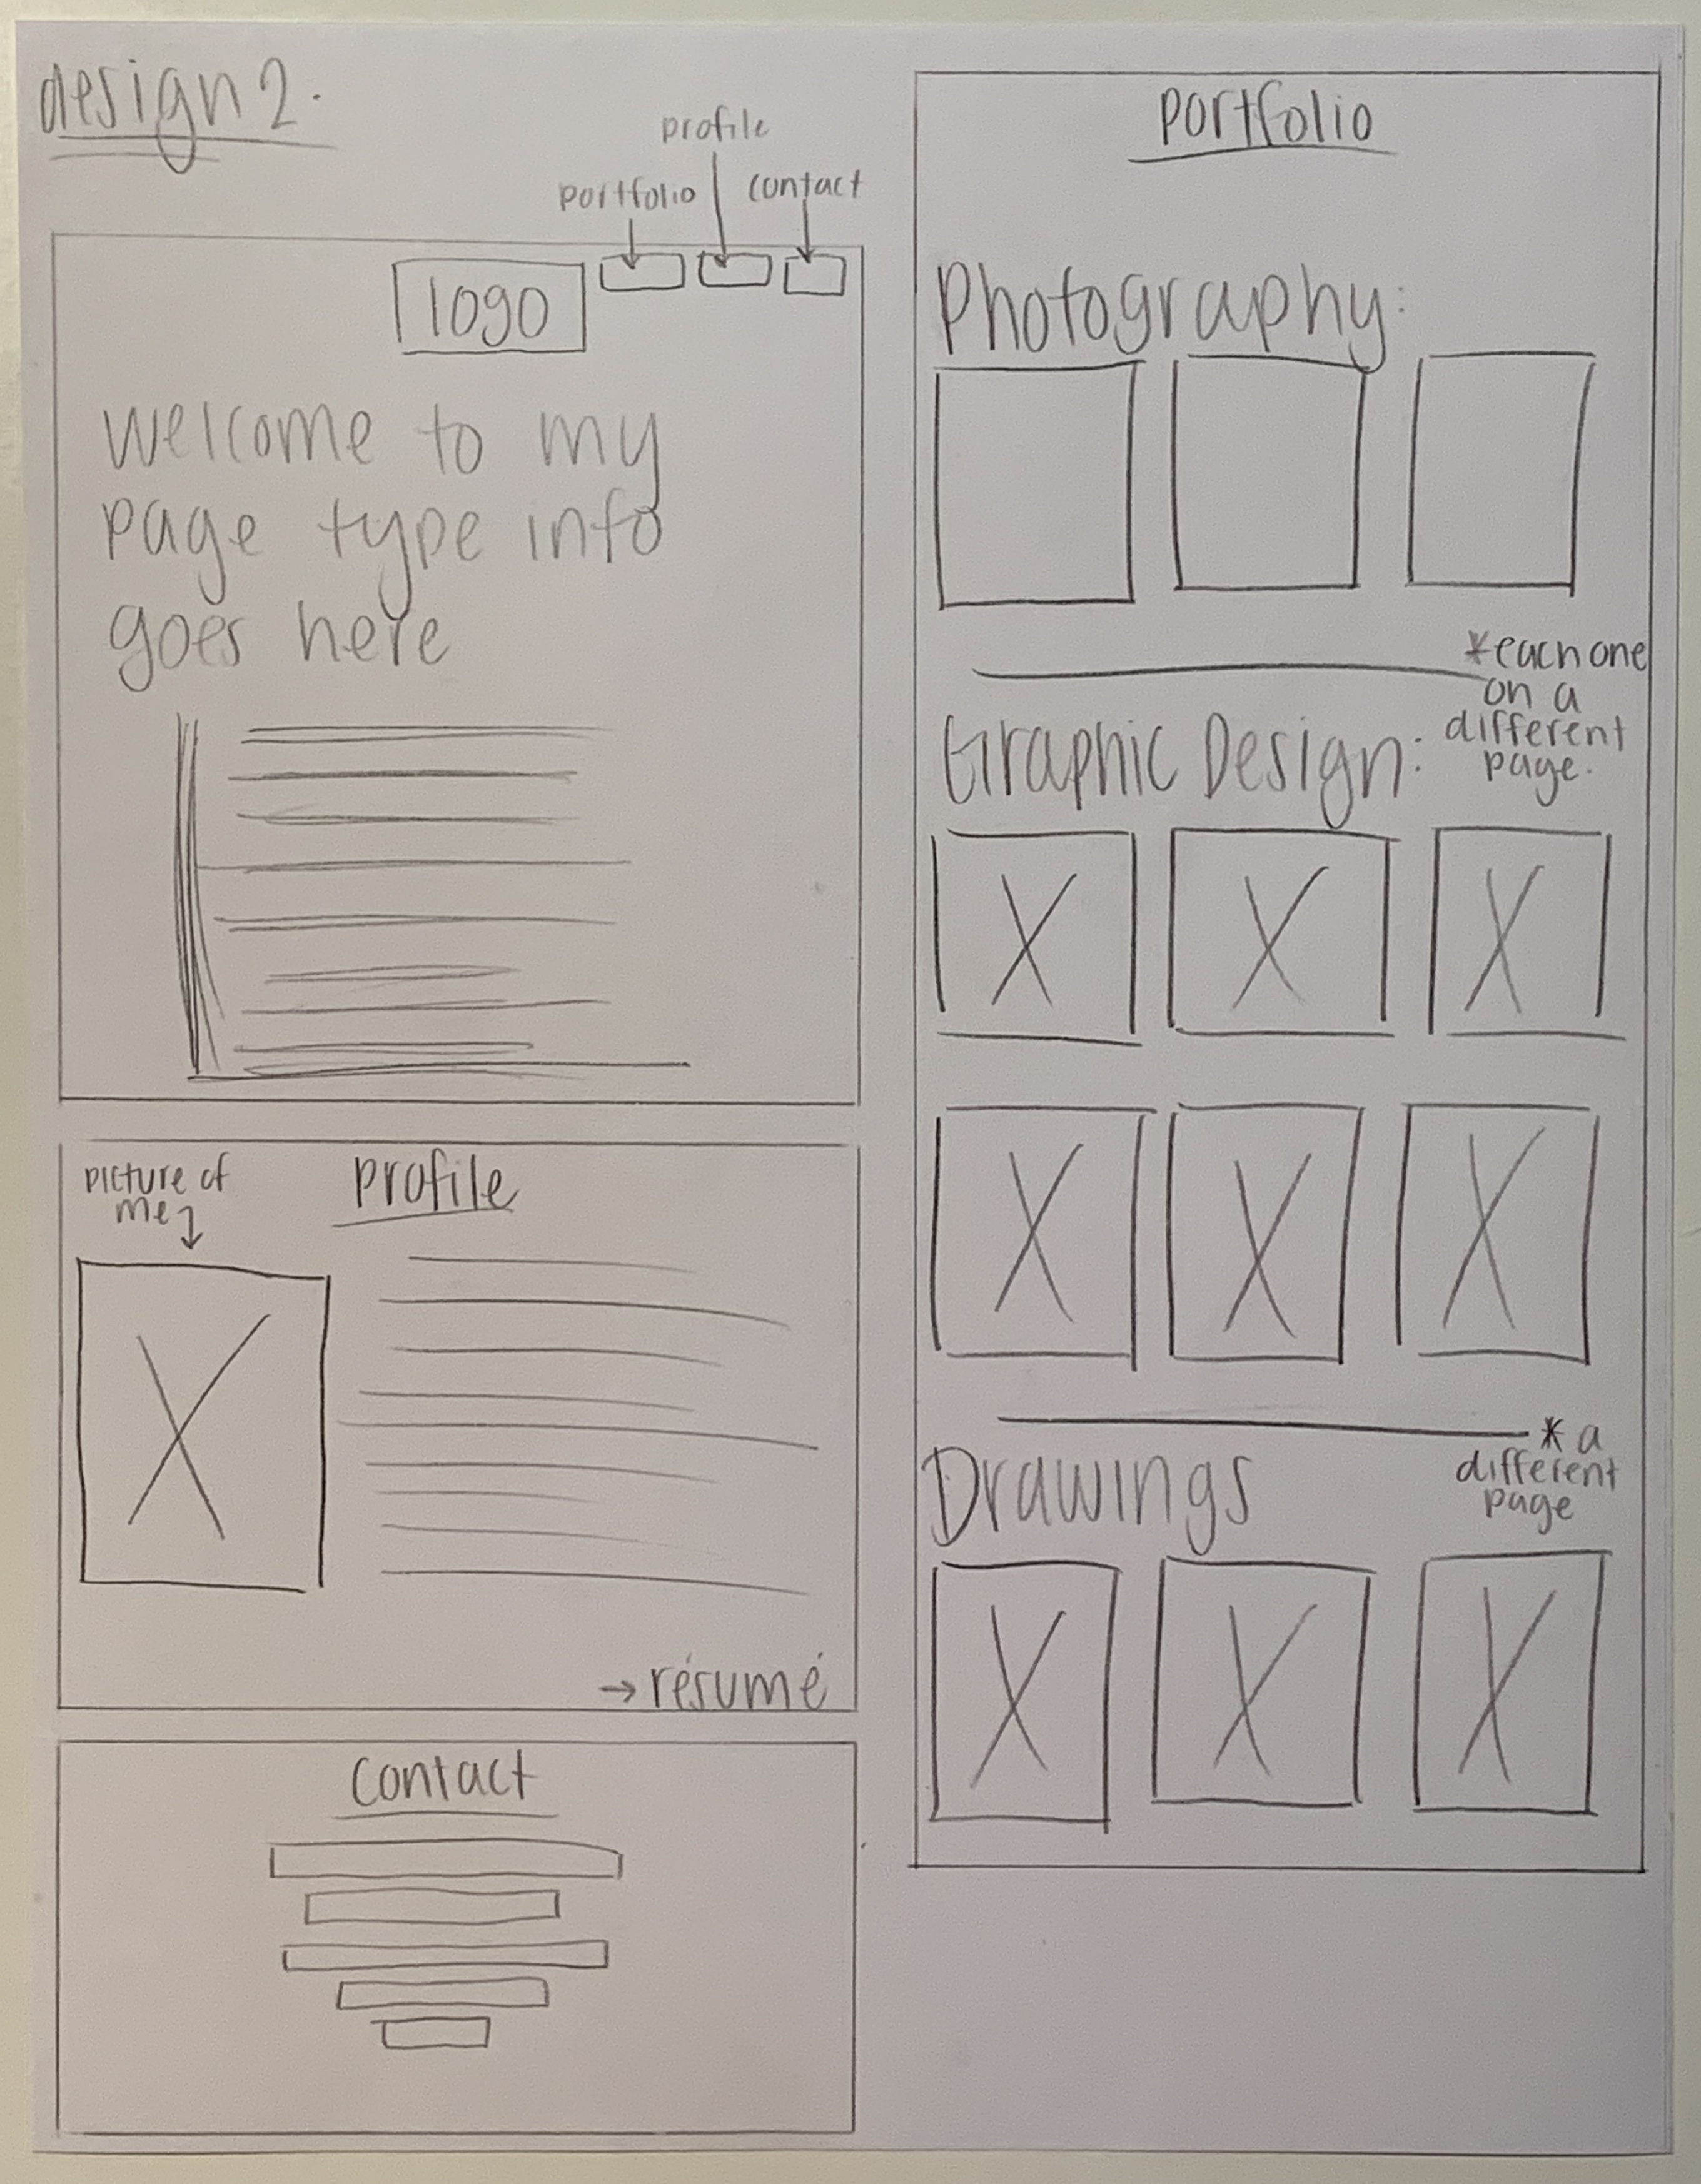 design 2.
profile
portfolio
contact
logo
welcome to my
page type info
goes here
picture of
me
profile
→ résumé
contact
portfolio
Photography:
*each one
on a
different
page.
Graphic Design:
* a
different
page
Drawings